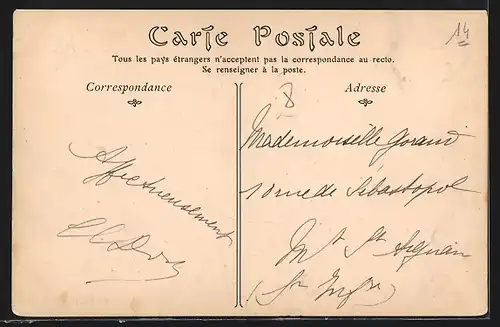 Carte Postale
Tous les pays étrangers n'acceptent pas la correspondance au recto.
Se renseigner à la poste.
Correspondance
Adresse
14
Affectueusement
Mademoiselle
10 rue de Sébastopol
Mt St Aignan
(Sn Infre)